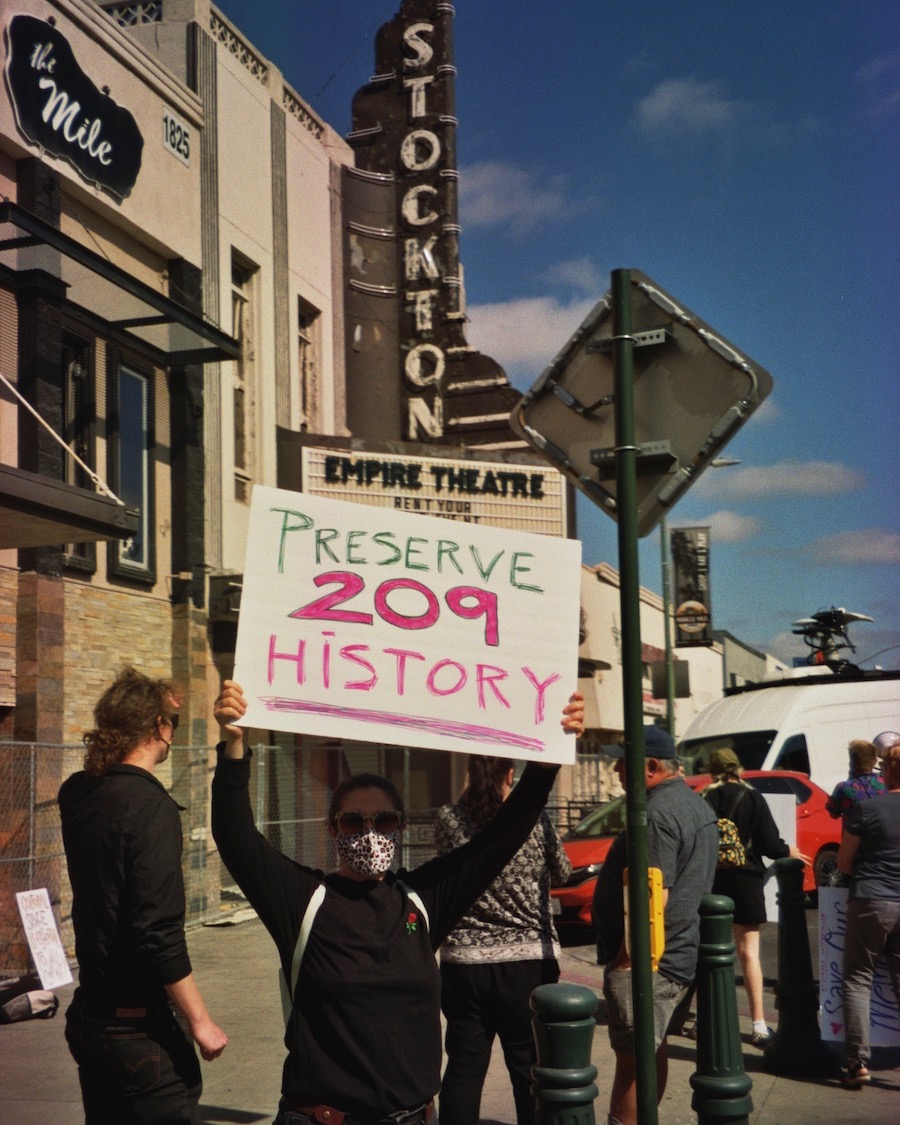 the
Mile
1825
STOCKTON
EMPIRE THEATRE
RENT YOUR
PRESERVE
209
HISTORY
Save Our